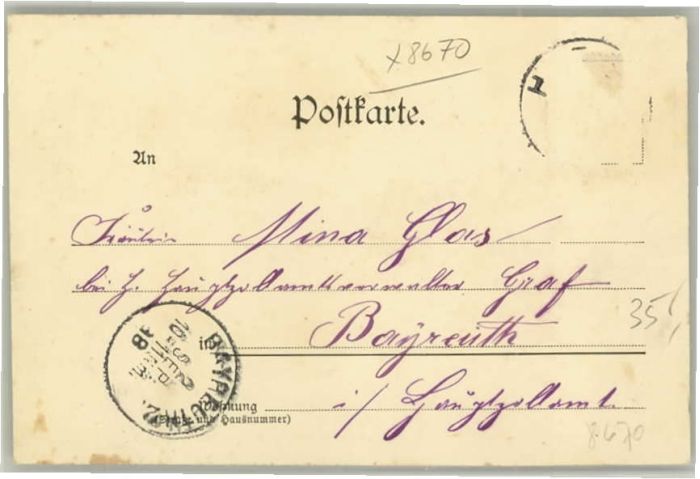 x8670
Postkarte.
1
An
Fräulein Mina Glas
bei H. Hauptzollamtsverwalter Graf
35,
in Bayreuth
BAYREUTH 2.
98
Wohnung i/ Hauptzollamt.
(Straße und Hausnummer)
8670